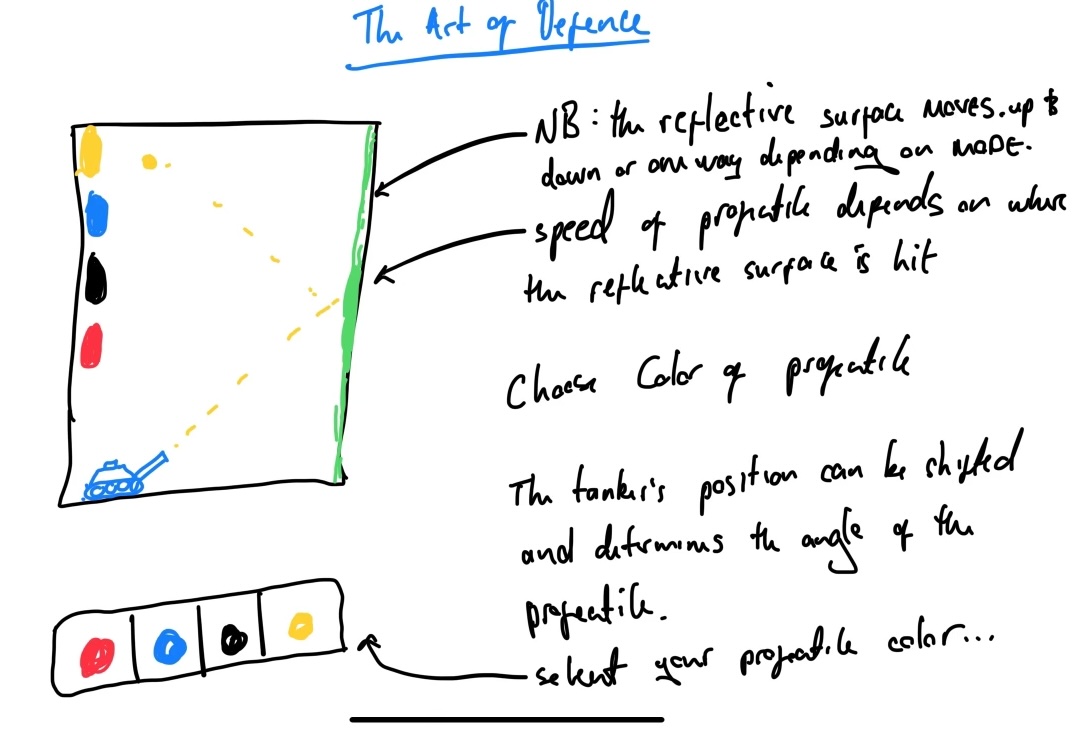 The Art of Defence
NB: the reflective surface moves. up &
down or one way depending on MODE.
speed of projectile depends on where
the reflective surface is hit
Choose Color of projectile
The tanker's position can be shifted
and determines the angle of the
projectile.
select your projectile color...